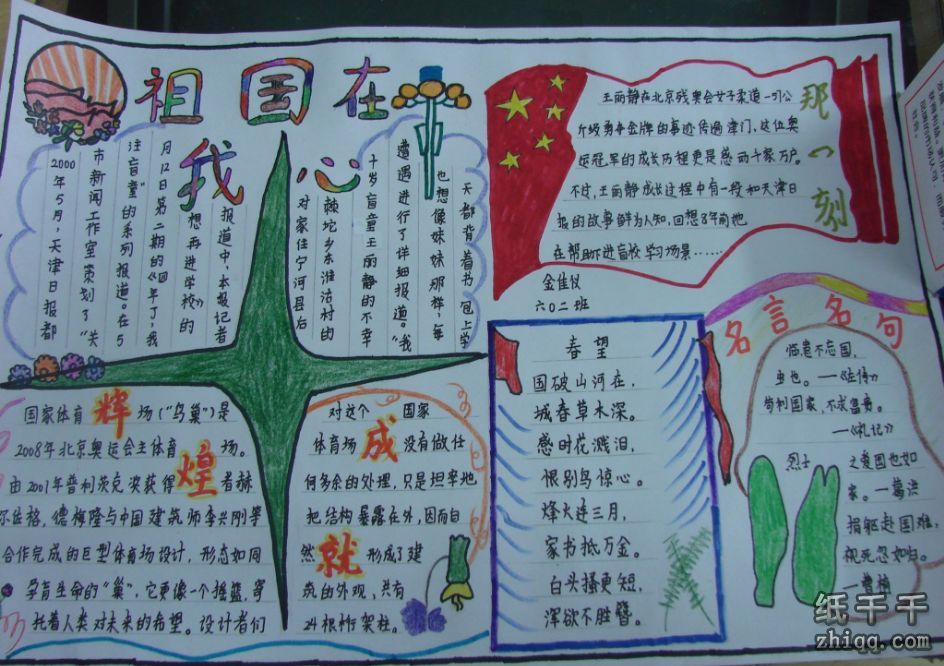 祖国在
我心
2000年5月，天津日报都
市新闻工作室策划了“关
注盲童”的系列报道。在5
月12日第二期的《四年了，我
想再进学校》的
报道中，本报记者
对家住宁河县后
棘坨乡东淮沽村的
十岁盲童王丽静的不幸
遭遇进行了详细报道。“我
也想像妹妹那样，每
天都背着书包上学
那一刻
王丽静在北京残奥会女子柔道一引公
斤级勇夺金牌的事迹传遍津门，这位奥
运冠军的成长历程更是感动千家万户。
不过，王丽静成长过程中有一段和天津日
报的故事鲜为人知，回想8年前他
在帮助下进盲校学习场景……
金佳仪
六〇二班
辉煌
国家体育场（“鸟巢”）是
2008年北京奥运会主体育场。
由2001年普利茨克奖获得者赫
尔佐格，德梅隆与中国建筑师李兴刚等
合作完成的巨型体育场设计，形态如同
孕育生命的“巢”，它更像一个摇篮，寄
托着人类对未来的希望。设计者们
成就
对这个国家
体育场没有做任
何多余的处理，只是坦率地
把结构暴露在外，因而自
然形成了建
筑的外观，共有
24根桁架柱。
春望
国破山河在，
城春草木深。
感时花溅泪，
恨别鸟惊心。
烽火连三月，
家书抵万金。
白头搔更短，
浑欲不胜簪。
名言名句
临患不忘国，
忠也。——《左传》
苟利国家，不求富贵。
——《礼记》
烈士之爱国也如
家。——葛洪
捐躯赴国难，
视死忽如归。
——曹植
纸千千
zhiqq.com